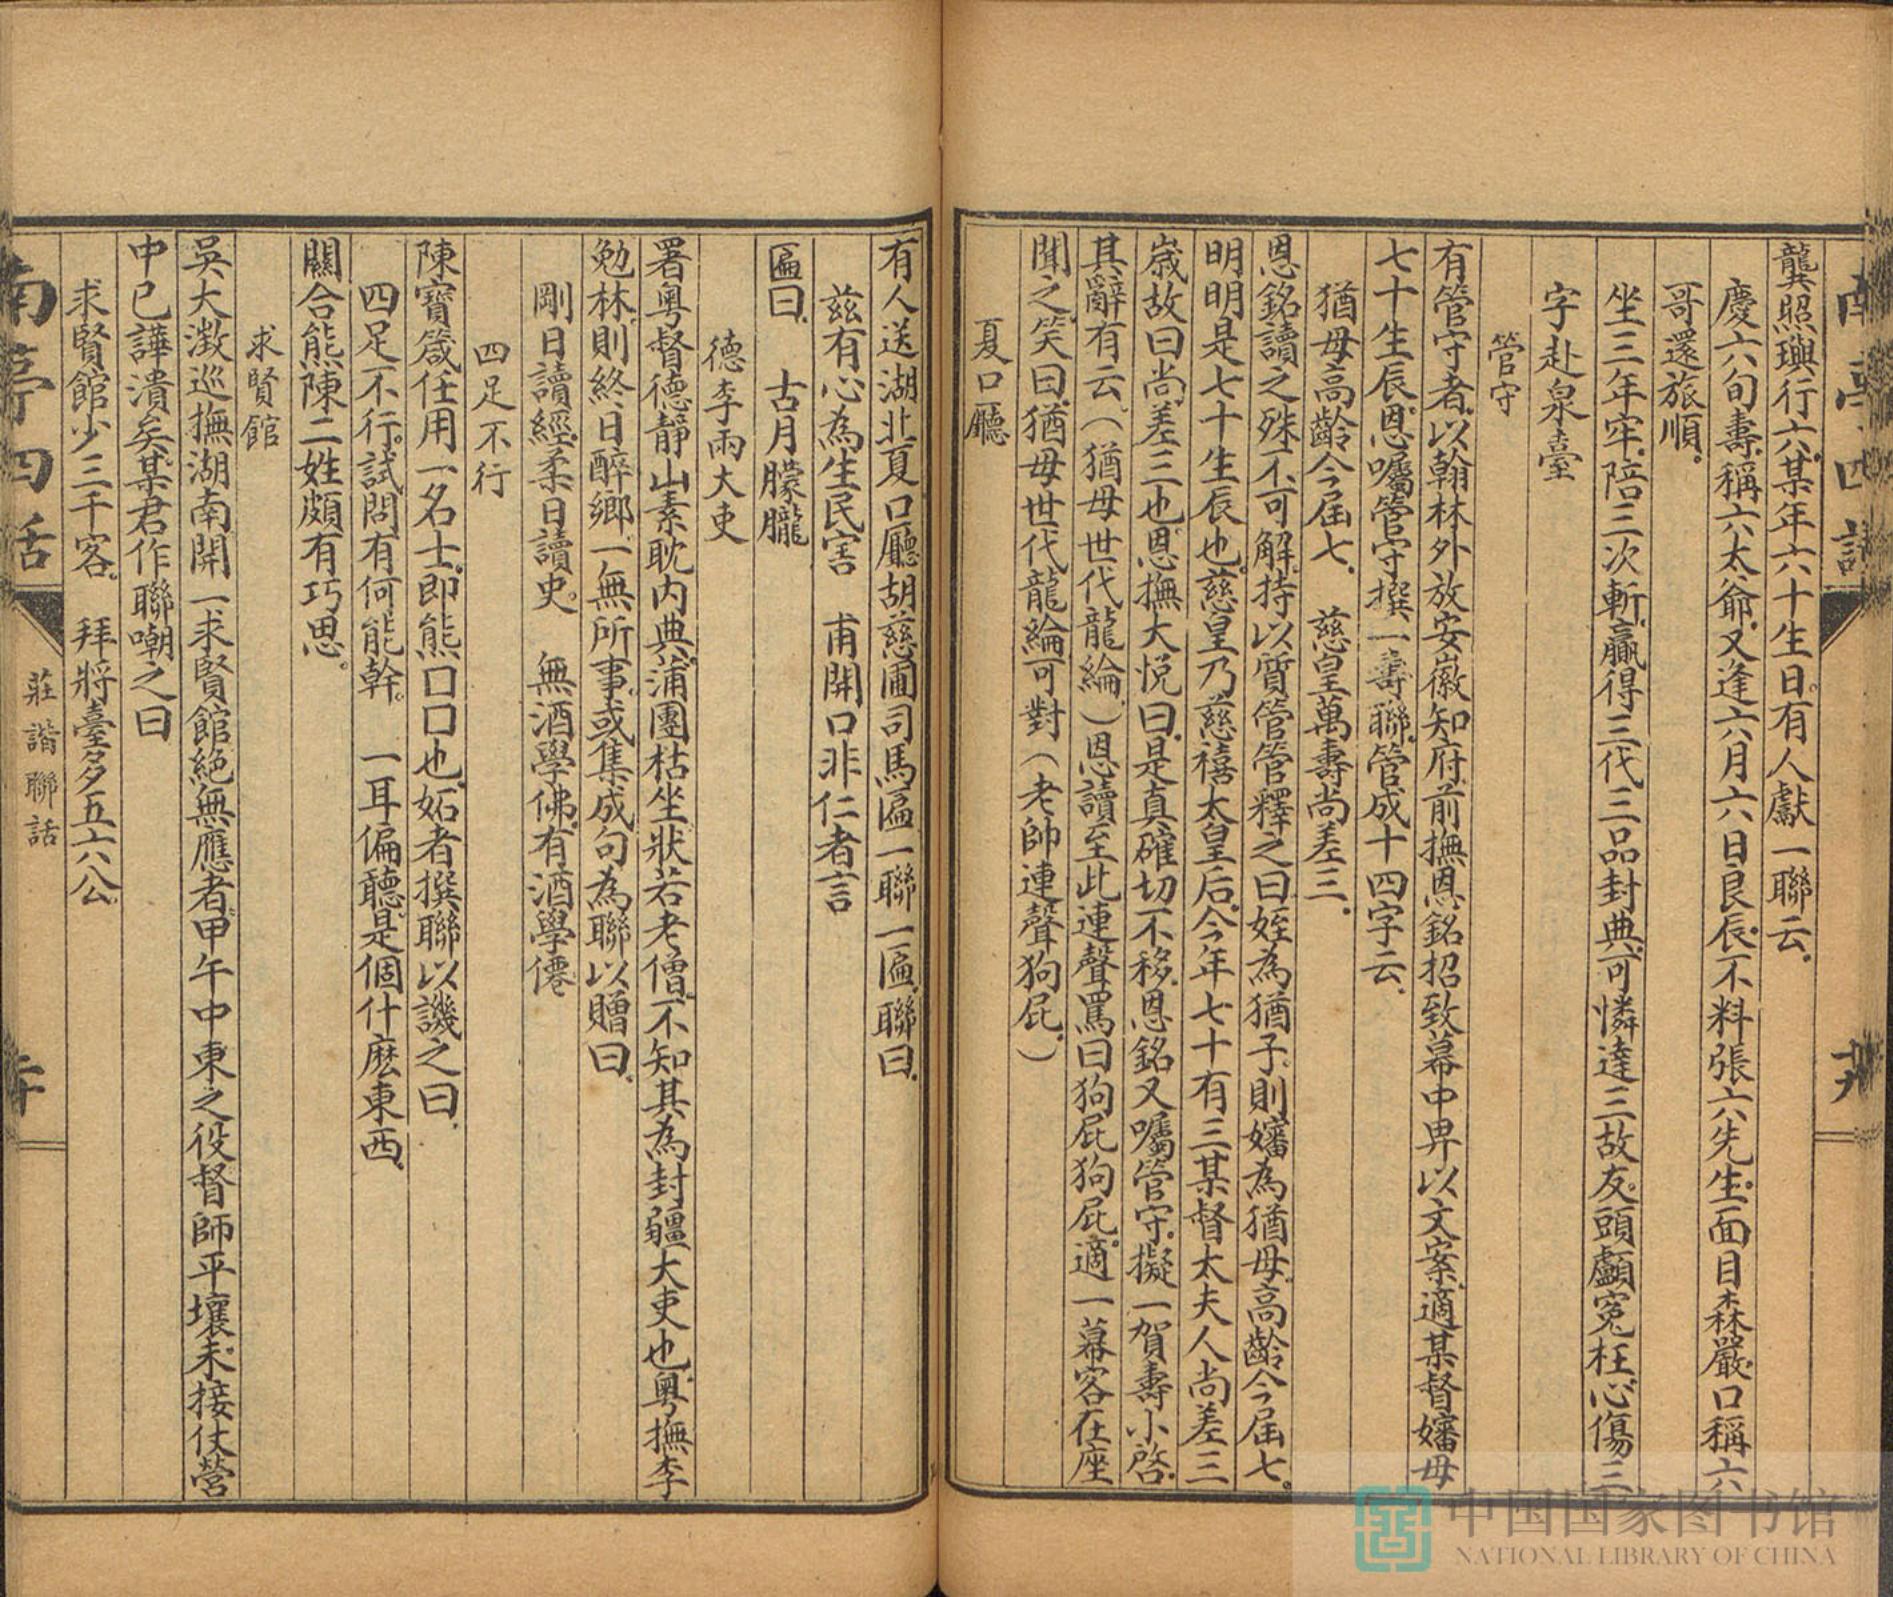 龔照璵行六某年六十生日。有人獻一聯云。
慶六旬壽。稱六太爺。又逢六月六日良辰。不料張六先生。面目森嚴。口稱六
哥還旅順。
坐三年牢。陪三次斬。贏得三代三品封典。可憐達三故友。頭顱冤枉。心傷三
字赴泉臺
管守
有管守者。以翰林外放安徽知府。前撫恩銘招致幕中畀以文案。適某督嬸母
七十生辰。恩囑管守撰一壽聯。管成十四字云。
猶母高齡今屆七。 慈皇萬壽尚差三。
恩銘讀之殊不可解。持以質管。管釋之曰。姪為猶子。則嬸為猶母。高齡今屆七。
明明是七十生辰也。慈皇乃慈禧太皇后。今年七十有三。某督太夫人尚差三
歲。故曰尚差三也。恩撫大悅曰。是真確切不移。恩銘又囑管守。擬一賀壽小啓。
其辭有云（猶母世代龍綸）恩讀至此連聲罵曰狗屁狗屁。適一幕客在座
聞之笑曰。猶母世代龍綸可對（老帥連聲狗屁。）
夏口廳
有人送湖北夏口廳胡慈圃司馬匾一聯一匾。聯曰。
茲有心為生民害 甫開口非仁者言
匾曰。 古月朦朧
德李兩大吏
署粵督德靜山素耽內典。蒲團枯坐。狀若老僧。不知其為封疆大吏也。粵撫李
勉林。則終日醉鄉一無所事。或集成句為聯以贈曰。
剛日讀經。柔日讀史。 無酒學佛。有酒學僊。
四足不行
陳寶箴任用一名士。即熊口口也。妬者撰聯以譏之曰。
四足不行。試問有何能幹。 一耳偏聽。是個什麽東西。
關合熊陳二姓頗有巧思。
求賢館
吳大澂巡撫湖南開一求賢館絕無應者。甲午中東之役督師平壤。未接仗營
中已譁潰矣。某君作聯嘲之曰
求賢館少三千客。 拜將臺多五六公。
南亭四話
莊諧聯話